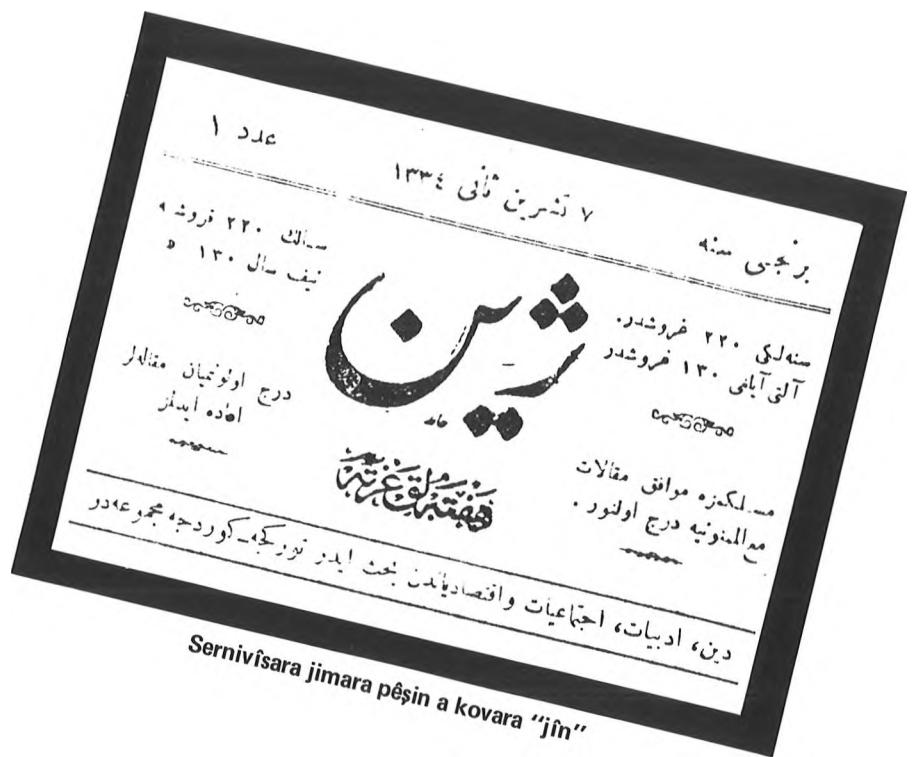 برنجی سنه
٧ تشرين ثانی ١٣٣٤
عدد ١
سنه‌لكی ٢٢٠ غروشدر.
آلتی آیلغی ١٣٠ غروشدر
مسلكمزه موافق مقالات
مع الممنونيه درج اولنور.
ژین
حامد
هفته‌لق غزته
سالك ٢٢٠ قروشه
نیف سال ١٣٠ »
درج اولونميان مقاله‌لر
اعاده ايدلمز
دين، ادبيات، اجتماعيات واقتصادياتدن بحث ايدر توركجه ـ كوردجه مجموعه‌در
Sernivîsara jimara pêşin a kovara "jîn"